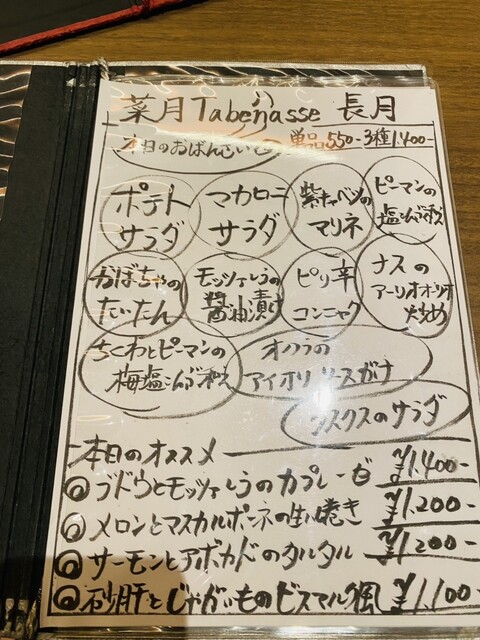 菜月Tabenasse 長月
本日のおばんざい 単品550- 3種1,400-
ポテト
サラダ
マカロニ
サラダ
紫キャベツの
マリネ
ピーマンの
塩こんぶ和え
かぼちゃの
たいたん
モッツァレラの
醤油漬け
ピリ辛
コンニャク
ナスの
アーリオオーリオ
炒め
ちくわとピーマンの
梅塩こんぶ和え
オクラの
アイオリソースがけ
クスクスのサラダ
本日のオススメ
◎ブドウとモッツァレラのカプレーゼ ¥1,400-
◎メロンとマスカルポーネの生ハム巻き ¥1,200-
◎サーモンとアボカドのタルタル ¥1,200-
◎砂肝とじゃがいものビスマルク風 ¥1,100-